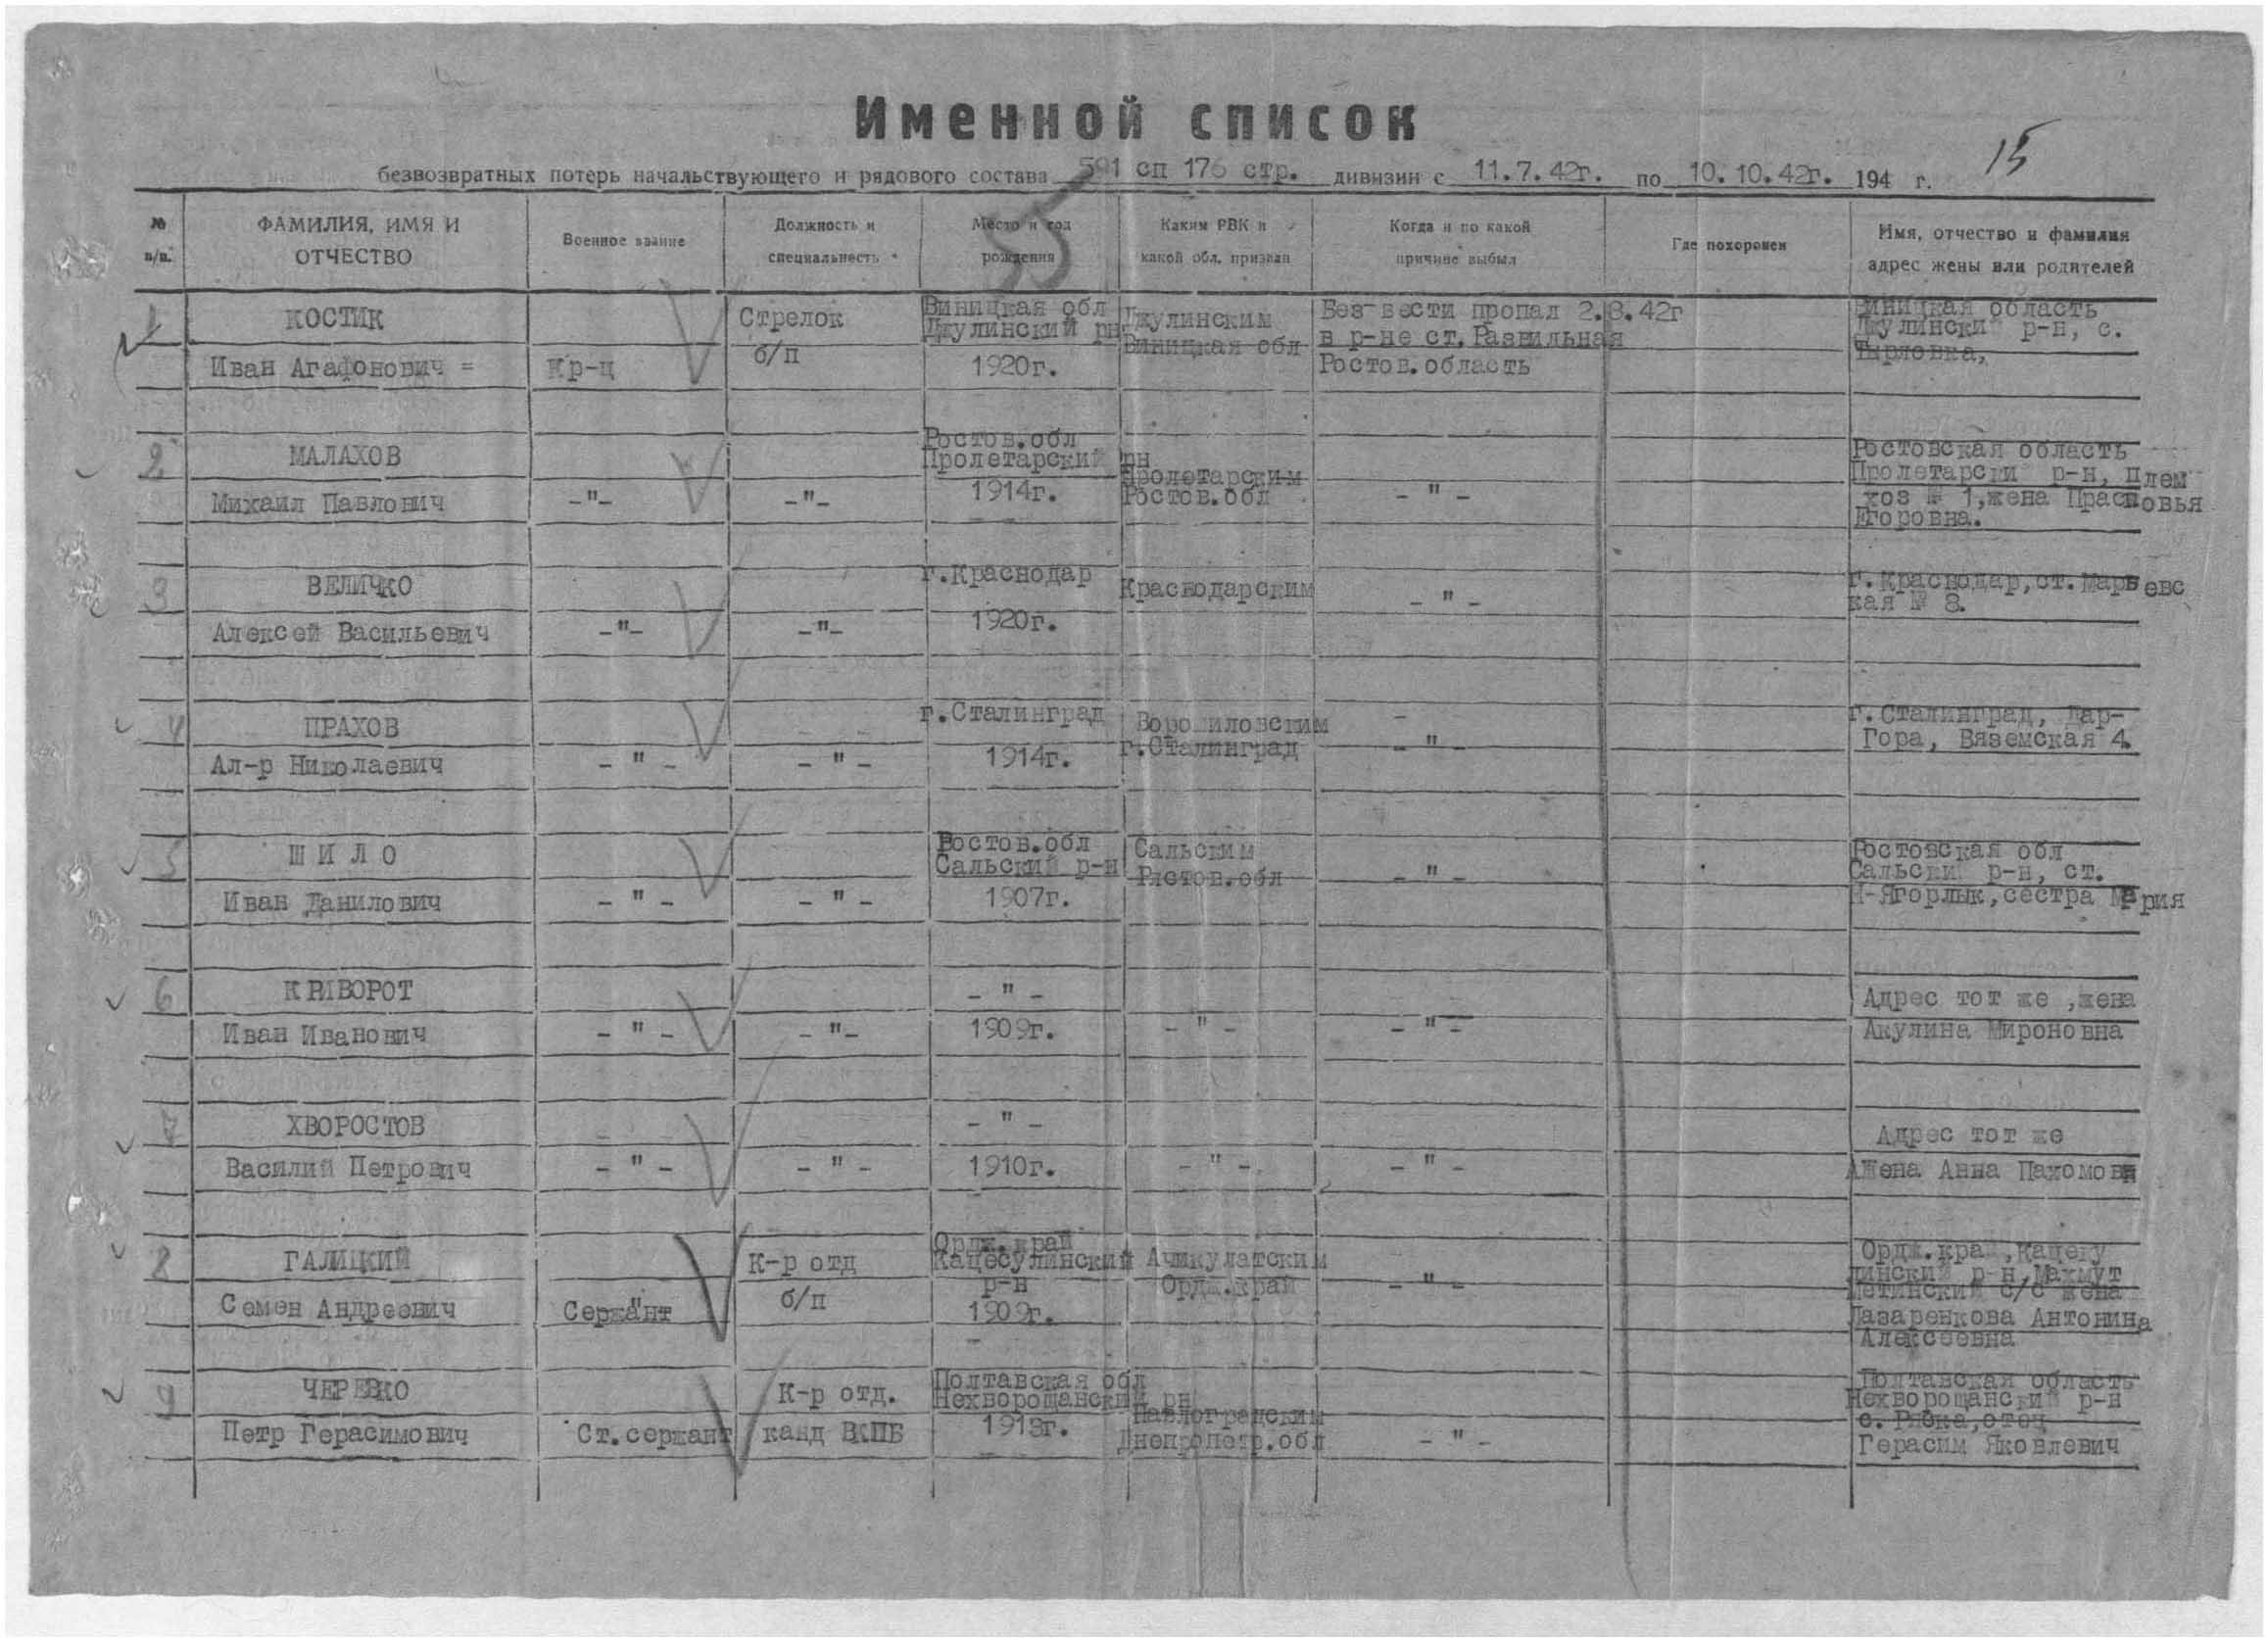 Именной список
15
безвозвратных потерь начальствующего и рядового состава 591 сп 176 стр. дивизии с 11.7.42г. по 10.10.42г. 194 г.
55
№ п/п.
ФАМИЛИЯ, ИМЯ И
ОТЧЕСТВО
Военное звание
Должность и
специальность
Место и год
рождения
Каким РВК и
какой обл. призван
Когда и по какой
причине выбыл
Где похоронен
Имя, отчество и фамилия
адрес жены или родителей
1
КОСТИК
Иван Агафонович =
Кр-ц
Стрелок
б/п
Виницкая обл
Джулинский рн
1920г.
Джулинским
Виницкая обл
Без вести пропал 2.8.42г
в р-не ст.Развильная
Ростов.область
Виницкая область
Джулински р-н, с.
Тырловка,
2
МАЛАХОВ
Михаил Павлович
-"-
-"-
Ростов.обл
Пролетарский рн
1914г.
Пролетарским
Ростов.обл
- " -
Ростовская область
Пролетарски р-н, Плем
хоз № 1,жена Прасковья
Егоровна.
3
ВЕЛИЧКО
Алексей Васильевич
-"-
-"-
г.Краснодар
1920г.
Краснодарским
- " -
г.Краснодар,ст.Марьевс
кая № 8.
4
ПРАХОВ
Ал-р Николаевич
- " -
- " -
г.Сталинград
1914г.
Ворошиловским
г.Сталинград
- " -
г.Сталинград, Дар-
Гора, Вяземская 4.
5
Ш И Л О
Иван Данилович
- " -
- " -
Ростов.обл
Сальский р-н
1907г.
Сальским
Ростов.обл
- " -
Ростовская обл
Сальски р-н, ст.
Н-Ягорлык,сестра Мария
6
КРИВОРОТ
Иван Иванович
- " -
- "-
- " -
1909г.
- " -
- " -
Адрес тот же ,жена
Акулина Мироновна
7
ХВОРОСТОВ
Василий Петрович
- " -
- " -
- " -
1910г.
- " -
- " -
Адрес тот же
Жена Анна Пахомовн
8
ГАЛИЦКИЙ
Семен Андреевич
Сержант
К-р отд
б/п
Ордж.край
Кацесулинский
р-н
1909г.
Ачикулатским
Ордж.край
- " -
Ордж.край,Кацегу
линский р-н,Махмут
Петинский с/с жена
Лазаренкова Антонина
Алексеевна
9
ЧЕРЕВКО
Петр Герасимович
Ст.сержант
К-р отд.
канд ВКПБ
Полтавская обл
Нехворощански рн
1913г.
Павлоградским
Днепропетр.обл
- " -
Полтавская область
Нехворощански р-н
с. Ряска,отец
Герасим Яковлевич